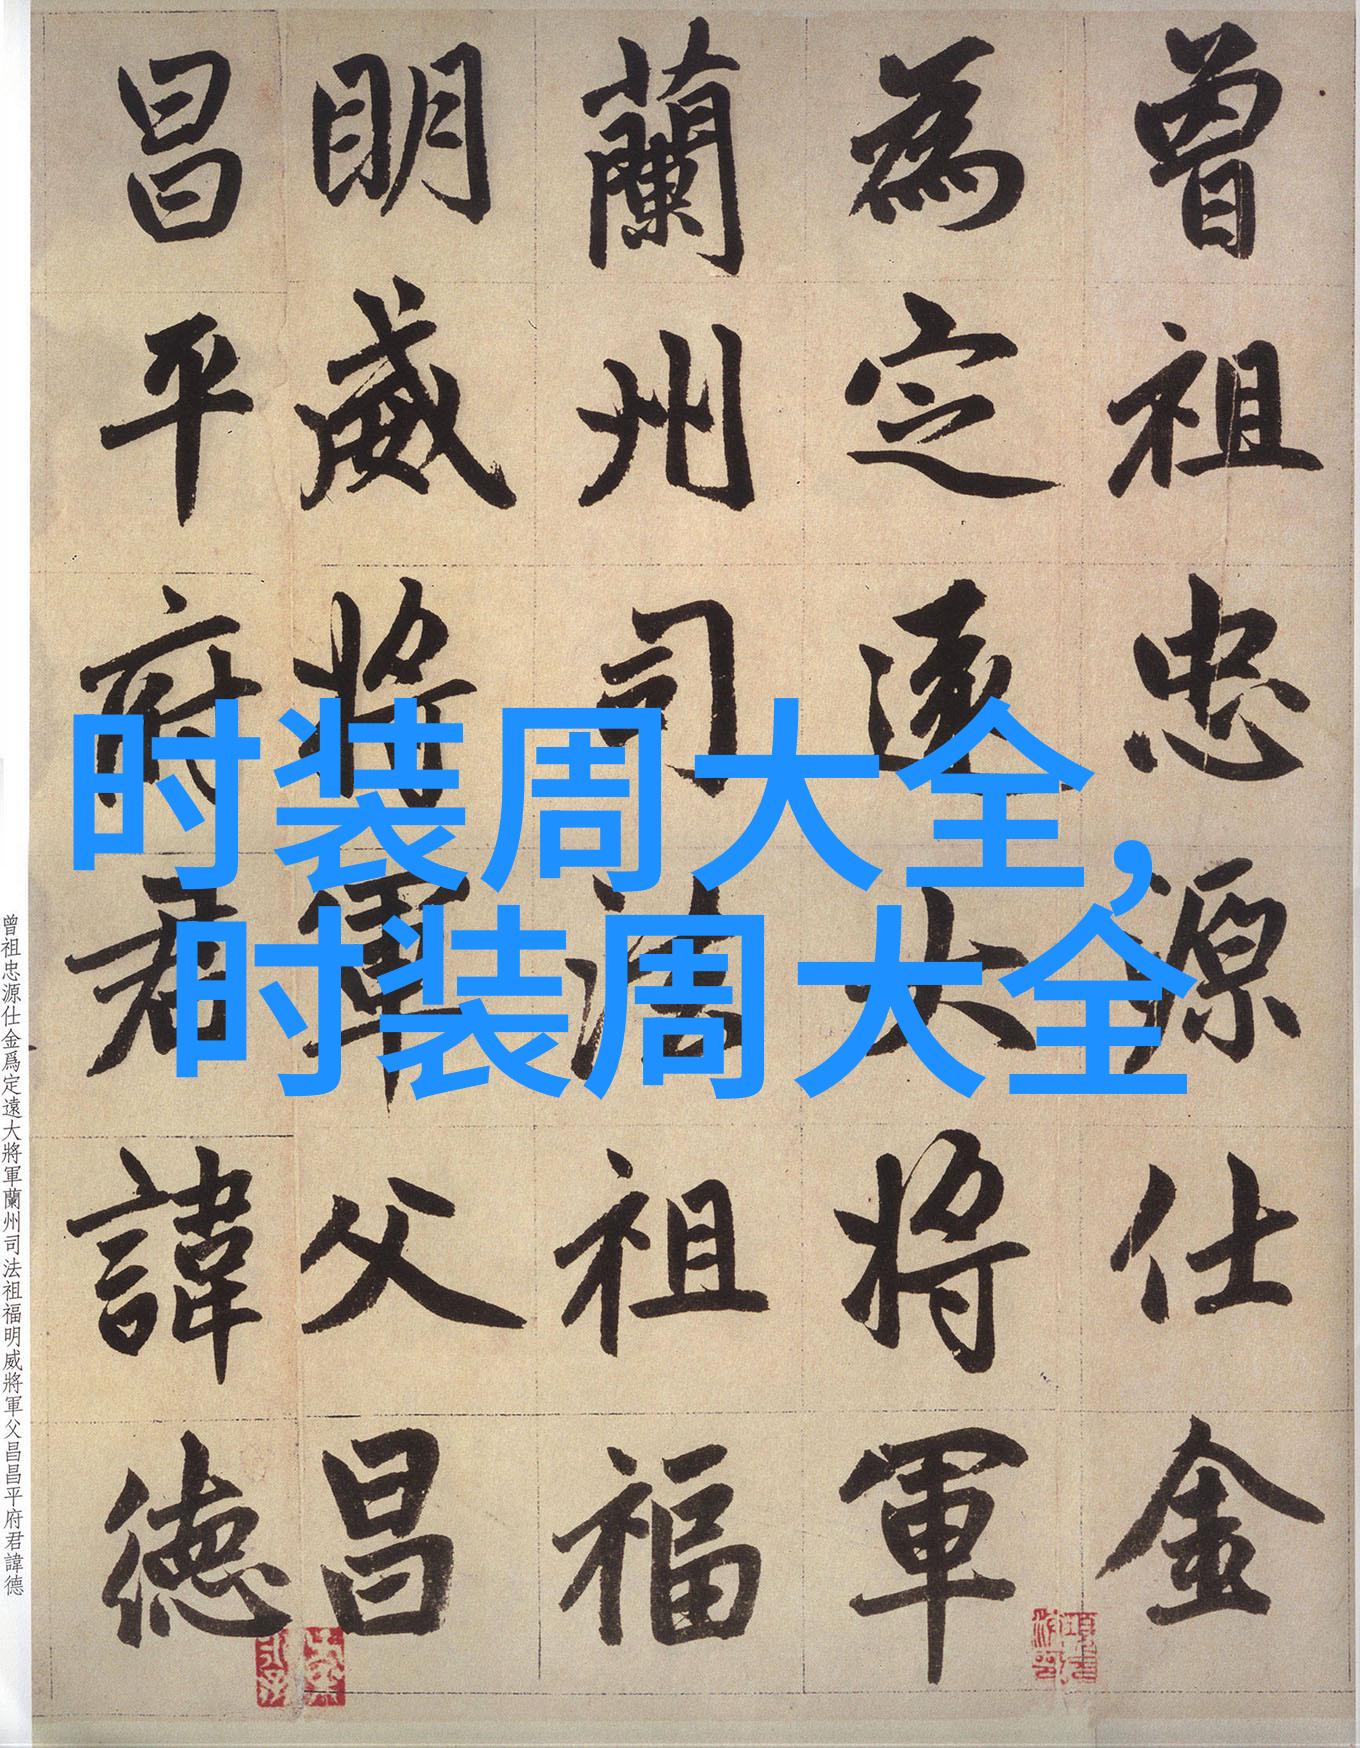 曾祖忠源仕金
為定遠大将軍
蘭州司法祖福
明威将軍父昌
昌平府君諱德
时装周大全，
时装周大全
曾祖忠源仕金爲定遠大將軍蘭州司法祖福明威將軍父昌昌平府君諱德